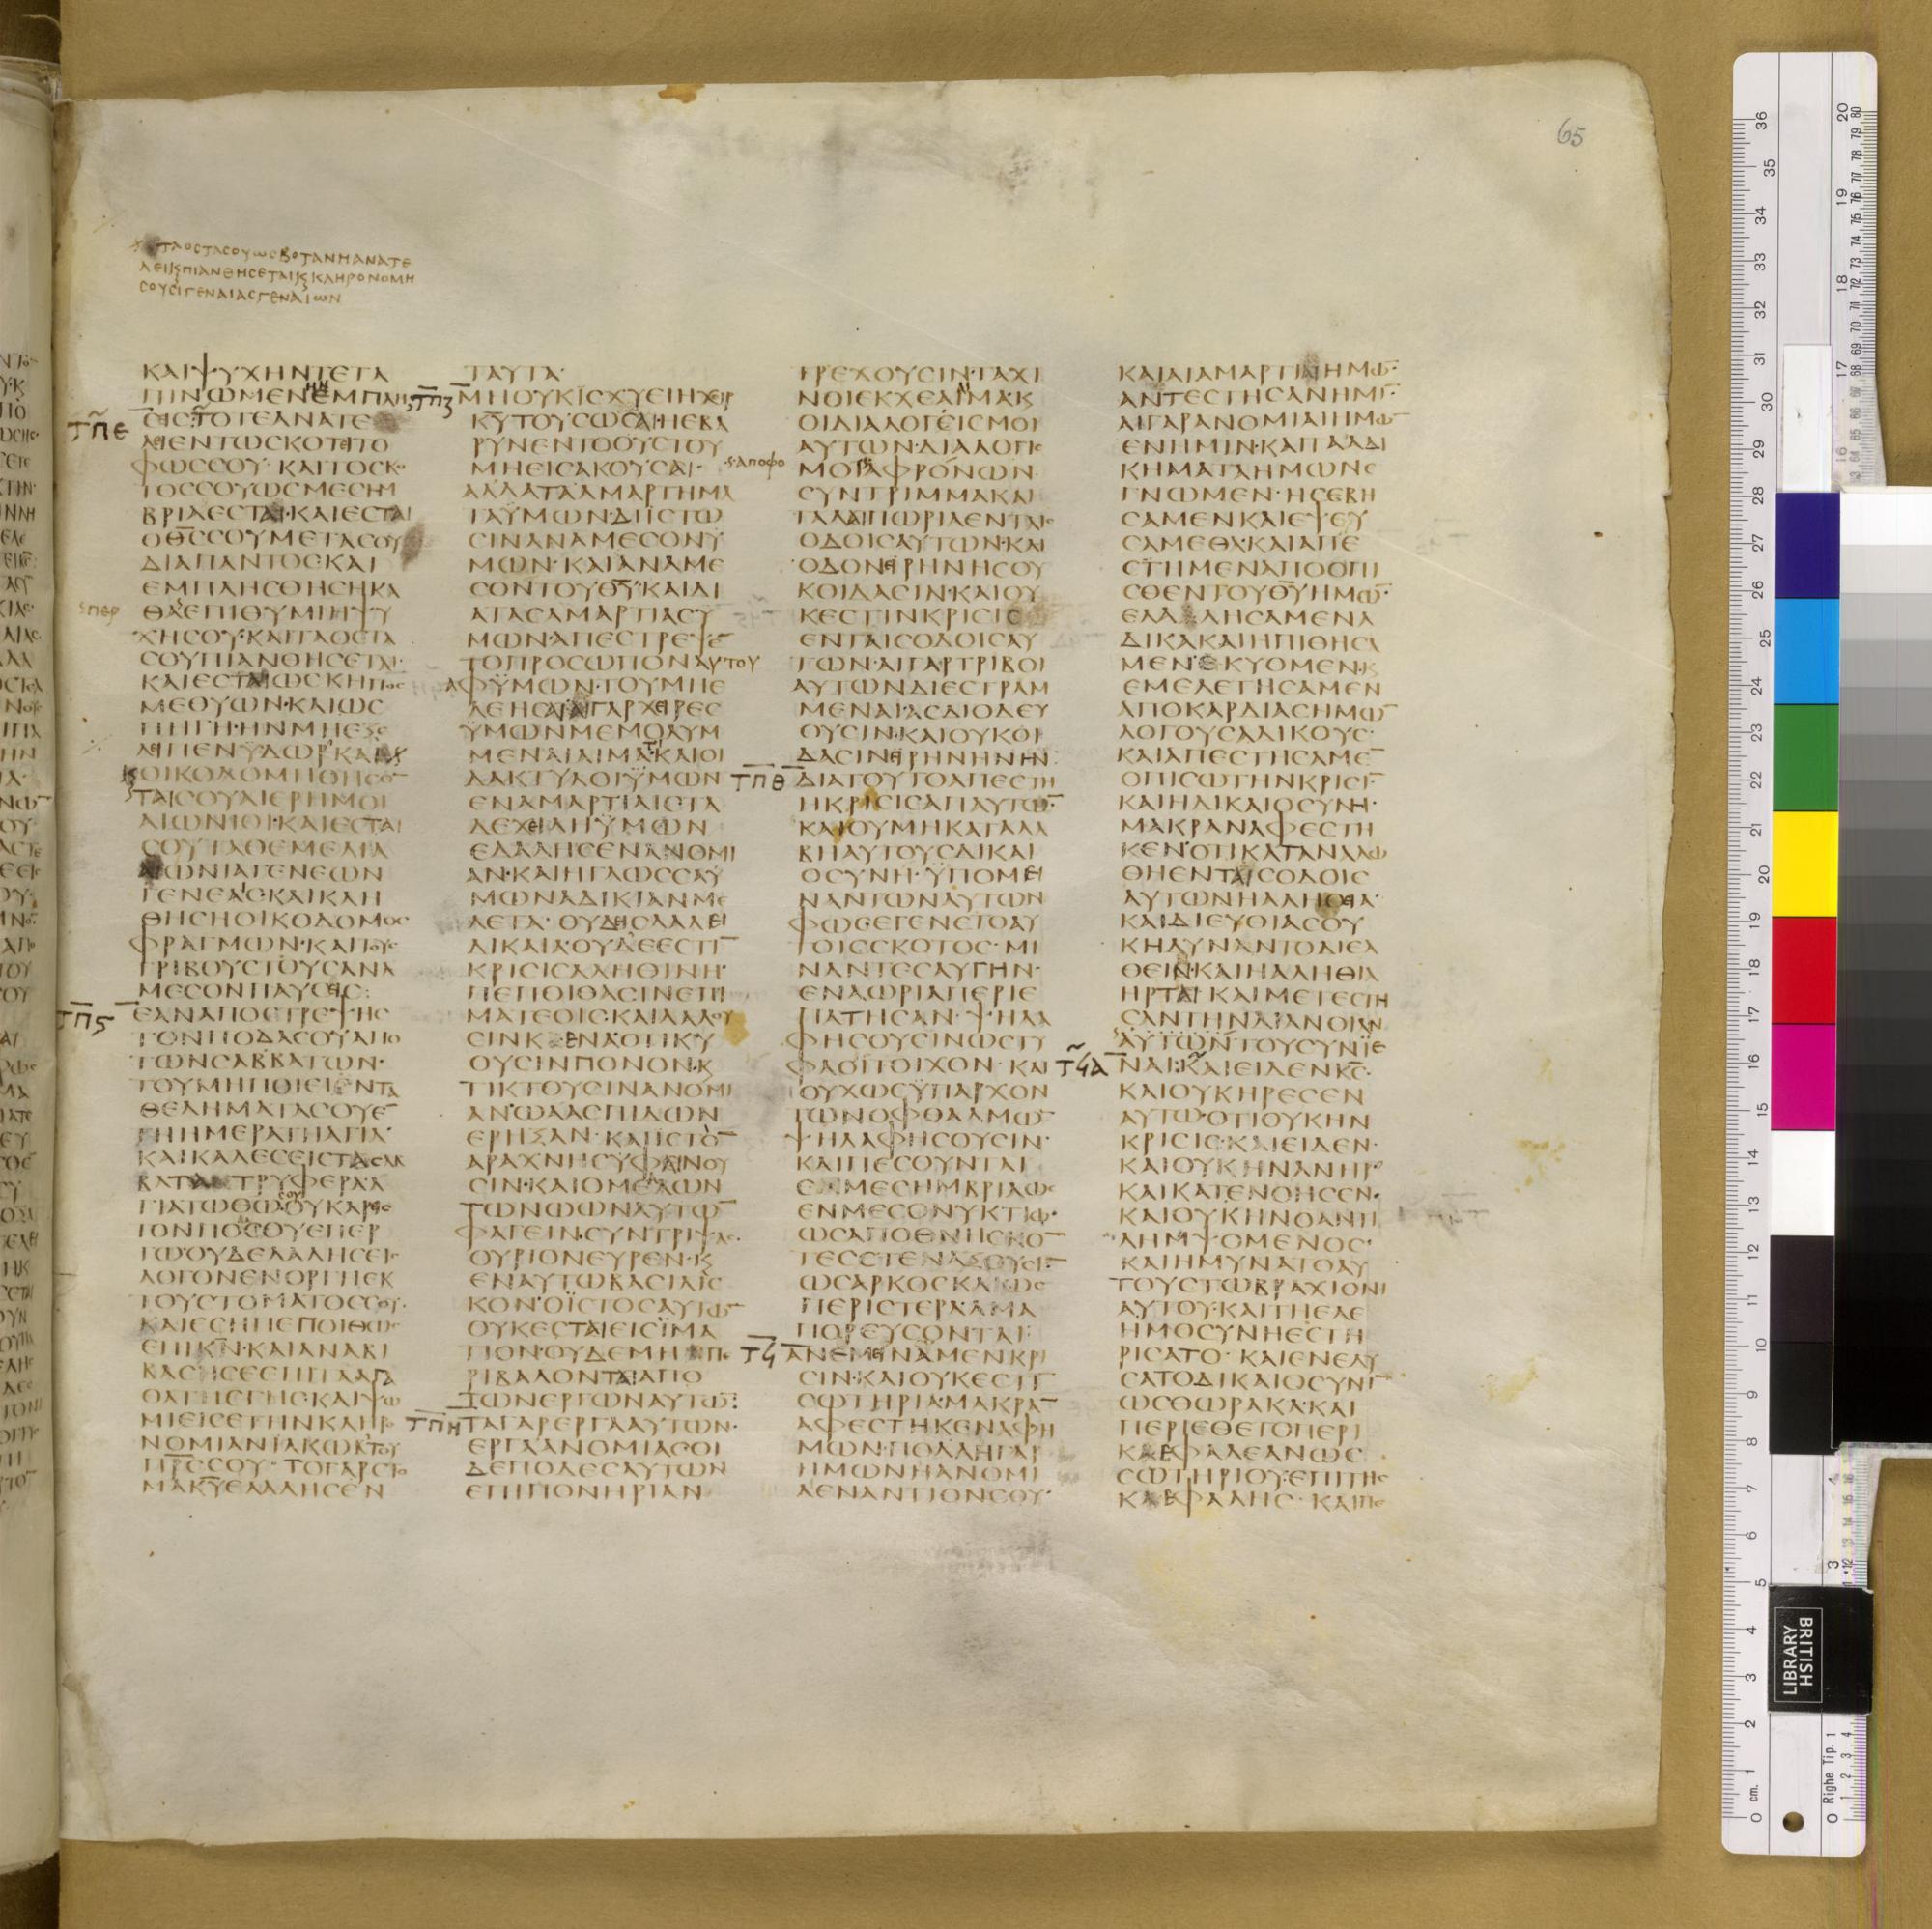 65
ΟϹΤΑϹΟΥΩϹΒΟΤΑΝΗΑΝΑΤΕ
ΛΕΙϗΠΙΑΝΘΗϹΕΤΑΙϗΚΛΗΡΟΝΟΜΗ
ϹΟΥϹΙΓΕΝΑΙΑϹΓΕΝΑΙΩΝ
ΚΑΙΨΥΧΗΝΤΕΤΑ
ΠΙΝΩΜΕΝΗΝΕΜΠΛΗ
ΤΠΕ
ϹΙϹΤΟΤΕΑΝΑΤΕ
ΛΙΕΝΤΩϹΚΟΤΙΤΟ
ΦΩϹϹΟΥ·ΚΑΙΤΟϹΚΟ
ΤΟϹϹΟΥΩϹΜΕϹΗΜ
ΒΡΙΑΕϹΤΑΙ·ΚΑΙΕϹΤΑΙ
ΟΘ̅Ϲ̅ϹΟΥΜΕΤΑϹΟΥ
ΔΙΑΠΑΝΤΟϹΚΑΙ
ΕΜΠΛΗϹΘΗϹΗΚΑ
ΘΑΕΠΙΘΥΜΙΗΨΥ
ΧΗϹΟΥ·ΚΑΙΤΑΟϹΤΑ
ϹΟΥΠΙΑΝΘΗϹΕΤΑΙ·
ΚΑΙΕϹΤΑΙΩϹΚΗΠΟϹ
ΜΕΘΥΩΝ·ΚΑΙΩϹ
ΠΗΓΗ·ΗΝΜΗΕΞΕ
ΛΙΠΕΝΫΔΩΡ·ΚΑΙ
ΟΙΚΟΔΟΜΗΘΗϹΟ̅
ΤΑΙϹΟΥΑΙΕΡΗΜΟΙ
ΑΙΩΝΙΟΙ·ΚΑΙΕϹΤΑΙ
ϹΟΥΤΑΘΕΜΕΛΙΑ
ΑΙΩΝΙΑΓΕΝΕΩΝ
ΓΕΝΕΑΙϹ·ΚΑΙΚΛΗ
ΘΗϹΗΟΙΚΟΔΟΜΟϹ
ΦΡΑΓΜΩΝ·ΚΑΙΤΟΥϹ
ΤΡΙΒΟΥϹΤΟΥϹΑΝΑ
ΜΕϹΟΝΠΑΥϹΙϹ:
ΤΠϚ
ΕΑΝΑΠΟϹΤΡΕΨΗϹ
ΤΟΝΠΟΔΑϹΟΥΑΠΟ
ΤΩΝϹΑΒΒΑΤΩΝ·
ΤΟΥΜΗΠΟΙΕΙΝΤΑ
ΘΕΛΗΜΑΤΑϹΟΥΕ̅
ΤΗΗΜΕΡΑΤΗΑΓΙΑ·
ΚΑΙΚΑΛΕϹΕΙϹΤΑϹΑΒ
ΒΑΤΑΤΡΥΦΕΡΑ·Α
ΓΙΑΤΩΘΩϹΟΥΟΥΚΑΡΙϹ
ΤΟΝΠΟΔΑϹΟΥΕΠΕΡ
ΓΩΟΥΔΕΛΑΛΗϹΕΙϹ
ΛΟΓΟΝΕΝΟΡΓΗΕΚ
ΤΟΥϹΤΟΜΑΤΟϹϹΟΥ·
ΚΑΙΕϹΗΠΕΠΟΙΘΩϹ
ΕΠΙΚ̅Ν̅·ΚΑΙΑΝΑΒΙ
ΒΑϹΙϹΕΕΠΙΤΑΑΓΑ
ΘΑΤΗϹΓΗϹ·ΚΑΙΨΩ
ΜΙΕΙϹΕΤΗΝΚΛΗΡΟ
ΝΟΜΙΑΝΙΑΚΩΒΤΟΥ
Π̅Ρ̅Ϲ̅ϹΟΥ·ΤΟΓΑΡϹΤΟ
ΜΑΚ̅Υ̅ΕΛΑΛΗϹΕΝ
ΤΑΥΤΑ·
ΤΠΖ
ΜΗΟΥΚΙϹΧΥΕΙΗΧΕΙΡ
Κ̅Υ̅ΤΟΥϹΩϹΑΙ·ΗΕΒΑ
ΡΥΝΕΝΤΟΟΥϹΤΟΥ
ΜΗΕΙϹΑΚΟΥϹΑΙ·
ΑΛΛΑΤΑΑΜΑΡΤΗΜΑ
ΤΑΫΜΩΝ·ΔΙΪϹΤΩ
ϹΙΝΑΝΑΜΕϹΟΝΫ
ΜΩΝ·ΚΑΙΑΝΑΜΕ
ϹΟΝΤΟΥΘ̅Υ̅·ΚΑΙΔΙ
ΑΤΑϹΑΜΑΡΤΙΑϹΫ
ΜΩΝ·ΑΠΕϹΤΡΕΨΕ̅
ΤΟΠΡΟϹΩΠΟΝΑΥΤΟΥ
ΑΦΫΜΩΝ·ΤΟΥΜΗΕ
ΛΕΗϹΑΙΑΙΓΑΡΧΙΡΕϹ
ΫΜΩΝΜΕΜΟΛΥΜ
ΜΕΝΑΙΑΙΜΑΤΙΚΑΙΟΙ
ΔΑΚΤΥΛΟΙΫΜΩΝ
ΕΝΑΜΑΡΤΙΑΙϹΤΑ
ΔΕΧΙΛΗΫΜΩΝ
ΕΛΑΛΗϹΕΝΑΝΟΜΙ
ΑΝ·ΚΑΙΗΓΛΩϹϹΑΫ
ΜΩΝΑΔΙΚΙΑΝΜΕ
ΛΕΤΑ·ΟΥΔΙϹΛΑΛΕΙ
ΔΙΚΑΙΑ·ΟΥΔΕΕϹΤΙ̅
ΚΡΙϹΙϹΑΛΗΘΙΝΗ·
ΠΕΠΟΙΘΑϹΙΝΕΠΙ
ΜΑΤΕΟΙϹ·ΚΑΙΛΑΛΟΥ
ϹΙΝΚΕΝΑΟΤΙΚΥ
ΟΥϹΙΝΠΟΝΟΝ·Κ
ΤΙΚΤΟΥϹΙΝΑΝΟΜΙ
ΑΝ·ΩΑΑϹΠΙΔΩΝ
ΕΡΗΞΑΝ·ΚΑΙΪϹΤΟ̅
ΑΡΑΧΝΗϹΥΦΑΙΝΟΥ
ϹΙΝ·ΚΑΙΟΜΕΛΛΩΝ
ΤΩΝΩΩΝΑΥΤΩ̅
ΦΑΓΕΙΝ·ϹΥΝΤΡΙΨΑϹ·
ΟΥΡΙΟΝΕΥΡΕΝ·Κ
ΕΝΑΥΤΩΒΑϹΙΛΙϹ
ΚΟΝ·ΟΪϹΤΟϹΑΥΤΩ̅
ΟΥΚΕϹΤΑΙΕΙϹΪΜΑ
ΤΙΟΝ·ΟΥΔΕΜΗΠΕ
ΡΙΒΑΛΟΝΤΑΙΑΠΟ
ΤΩΝΕΡΓΩΝΑΥΤΩ̅:
ΤΠΗ
ΤΑΓΑΡΕΡΓΑΑΥΤΩΝ·
ΕΡΓΑΑΝΟΜΙΑϹΟΙ
ΔΕΠΟΔΕϹΑΥΤΩΝ
ΕΠΙΠΟΝΗΡΙΑΝ
ΤΡΕΧΟΥϹΙΝ·ΤΑΧΙ
ΝΟΙΕΚΧΕΑΙΑΙΜΑ·Κ
ΟΙΔΙΑΛΟΓΕΙϹΜΟΙ
ΑΥΤΩΝ·ΔΙΑΛΟΓΙϹ
ΑΠΟΦΟ
ΜΟΙΑΦΡΟΝΩΝ
ϹΥΝΤΡΙΜΜΑΚΑΙ
ΤΑΛΑΙΠΩΡΙΑΕΝΤΑΙϹ
ΟΔΟΙϹΑΥΤΩΝ·ΚΑΙ
ΟΔΟΝΙΡΗΝΗϹΟΥ
ΚΟΙΔΑϹΙΝ·ΚΑΙΟΥ
ΚΕϹΤΙΝΚΡΙϹΙϹ
ΕΝΤΑΙϹΟΔΟΙϹΑΥ
ΤΩΝ·ΑΙΓΑΡΤΡΙΒΟΙ
ΑΥΤΩΝΔΙΕϹΤΡΑΜ
ΜΕΝΑΙ·ΑϹΔΙΟΔΕΥ
ΟΥϹΙΝ·ΚΑΙΟΥΚΟΙ
ΔΑϹΙΝΙΡΗΝΗΝ:
ΤΠΘ
ΔΙΑΤΟΥΤΟΑΠΕϹΤΗ
ΗΚΡΙϹΙϹΑΠΑΥΤΩ̅·
ΚΑΙΟΥΜΗΚΑΤΑΛΑ
ΒΗΑΥΤΟΥϹΔΙΚΑΙ
ΟϹΥΝΗ·ΫΠΟΜΙ
ΝΑΝΤΩΝΑΥΤΩΝ
ΦΩϹΕΓΕΝΕΤΟΑΥ
ΤΟΙϹϹΚΟΤΟϹ·ΜΙ
ΝΑΝΤΕϹΑΥΓΗΝ·
ΕΝΑΩΡΙΑΠΕΡΙΕ
ΠΑΤΗϹΑΝ·ΨΗΛΑ
ΦΗϹΟΥϹΙΝΩϹΤΥ
ΦΛΟΙΤΟΙΧΟΝ·ΚΑΙ
ΟΥΧΩϹΫΠΑΡΧΟΝ
ΤΩΝΟΦΘΑΛΜΩ̅
ΨΗΛΑΦΗϹΟΥϹΙΝ·
ΚΑΙΠΕϹΟΥΝΤΑΙ
ΕΜΜΕϹΗΜΒΡΙΑΩϹ
ΕΝΜΕϹΟΝΥΚΤΙΩ·
ΩϹΑΠΟΘΝΗϹΚΟ̅
ΤΕϹϹΤΕΝΑΞΟΥϹΙ̅
ΩϹΑΡΚΟϹΚΑΙΩϹ
ΠΕΡΙϹΤΕΡΑ·ΑΜΑ
ΠΟΡΕΥϹΟΝΤΑΙ:
ΤϞ
ΑΝΕΜΙΝΑΜΕΝΚΡΙ
ϹΙΝ·ΚΑΙΟΥΚΕϹΤΙ̅
ϹΩΤΗΡΙΑ·ΜΑΚΡΑ̅
ΑΦΕϹΤΗΚΕΝΑΦΗ
ΜΩΝ·ΠΟΛΛΗΓΑΡ
ΗΜΩΝΗΑΝΟΜΙ
ΑΕΝΑΝΤΙΟΝϹΟΥ·
ΚΑΙΑΙΑΜΑΡΤΙΑΙΗΜΩ̅·
ΑΝΤΕϹΤΗϹΑΝΗΜΙ̅·
ΑΙΓΑΡΑΝΟΜΙΑΙΗΜΩ̅
ΕΝΗΜΙΝ·ΚΑΙΤΑΑΔΙ
ΚΗΜΑΤΑΗΜΩΝΕ
ΓΝΩΜΕΝ·ΗϹΕΒΗ
ϹΑΜΕΝΚΑΙΕΨΕΥ
ϹΑΜΕΘΑ·ΚΑΙΑΠΕ
ϹΤΗΜΕΝΑΠΟΟΠΙ
ϹΘΕΝΤΟΥΘ̅Υ̅ΗΜΩ̅·
ΕΛΑΛΗϹΑΜΕΝΑ
ΔΙΚΑΚΑΙΗΠΙΘΗϹΑ
ΜΕΝ·ΕΚΥΟΜΕΝ·Κ
ΕΜΕΛΕΤΗϹΑΜΕΝ
ΑΠΟΚΑΡΔΙΑϹΗΜΩ̅
ΛΟΓΟΥϹΑΔΙΚΟΥϹ·
ΚΑΙΑΠΕϹΤΗϹΑΜΕ̅
ΟΠΙϹΩΤΗΝΚΡΙϹΙ̅
ΚΑΙΗΔΙΚΑΙΟϹΥΝΗ·
ΜΑΚΡΑΝΑΦΕϹΤΗ
ΚΕΝ·ΟΤΙΚΑΤΑΝΑΛΩ
ΘΗΕΝΤΑΙϹΟΔΟΙϹ
ΑΥΤΩΝΗΑΛΗΘΙΑ·
ΚΑΙΔΙΕΥΘΙΑϹΟΥ
ΚΗΔΥΝΑΝΤΟΔΙΕΛ
ΘΕΙΝ·ΚΑΙΗΑΛΗΘΙΑ
ΗΡΤΑΙ·ΚΑΙΜΕΤΕϹΤΗ
ϹΑΝΤΗΝΔΙΑΝΟΙΑΝ
ΑΥΤΩΝΤΟΥϹΥΝΙΕ
ΤϞΑ
ΝΑΙ:ΚΑΙΕΙΔΕΝΚ̅Ϲ̅·
ΚΑΙΟΥΚΗΡΕϹΕΝ
ΑΥΤΩ·ΟΤΙΟΥΚΗΝ
ΚΡΙϹΙϹ·ΚΑΙΕΙΔΕΝ·
ΚΑΙΟΥΚΗΝΑΝΗΡ·
ΚΑΙΚΑΤΕΝΟΗϹΕΝ·
ΚΑΙΟΥΚΗΝΟΑΝΤΙ
ΛΗΜΨΟΜΕΝΟϹ·
ΚΑΙΗΜΥΝΑΤΟΑΥ
ΤΟΥϹΤΩΒΡΑΧΙΟΝΙ
ΑΥΤΟΥ·ΚΑΙΤΗΕΛΕ
ΗΜΟϹΥΝΗΕϹΤΗ
ΡΙϹΑΤΟ·ΚΑΙΕΝΕΔΥ
ϹΑΤΟΔΙΚΑΙΟϹΥΝΗ̅
ΩϹΘΩΡΑΚΑ·ΚΑΙ
ΠΕΡΙΕΘΕΤΟΠΕΡΙ
ΚΕΦΑΛΕΑΝΩϹ
ϹΩΤΗΡΙΟΥ·ΕΠΙΤΗϹ
ΚΕΦΑΛΗϹ·ΚΑΙΠΕ
BRITISH
LIBRARY